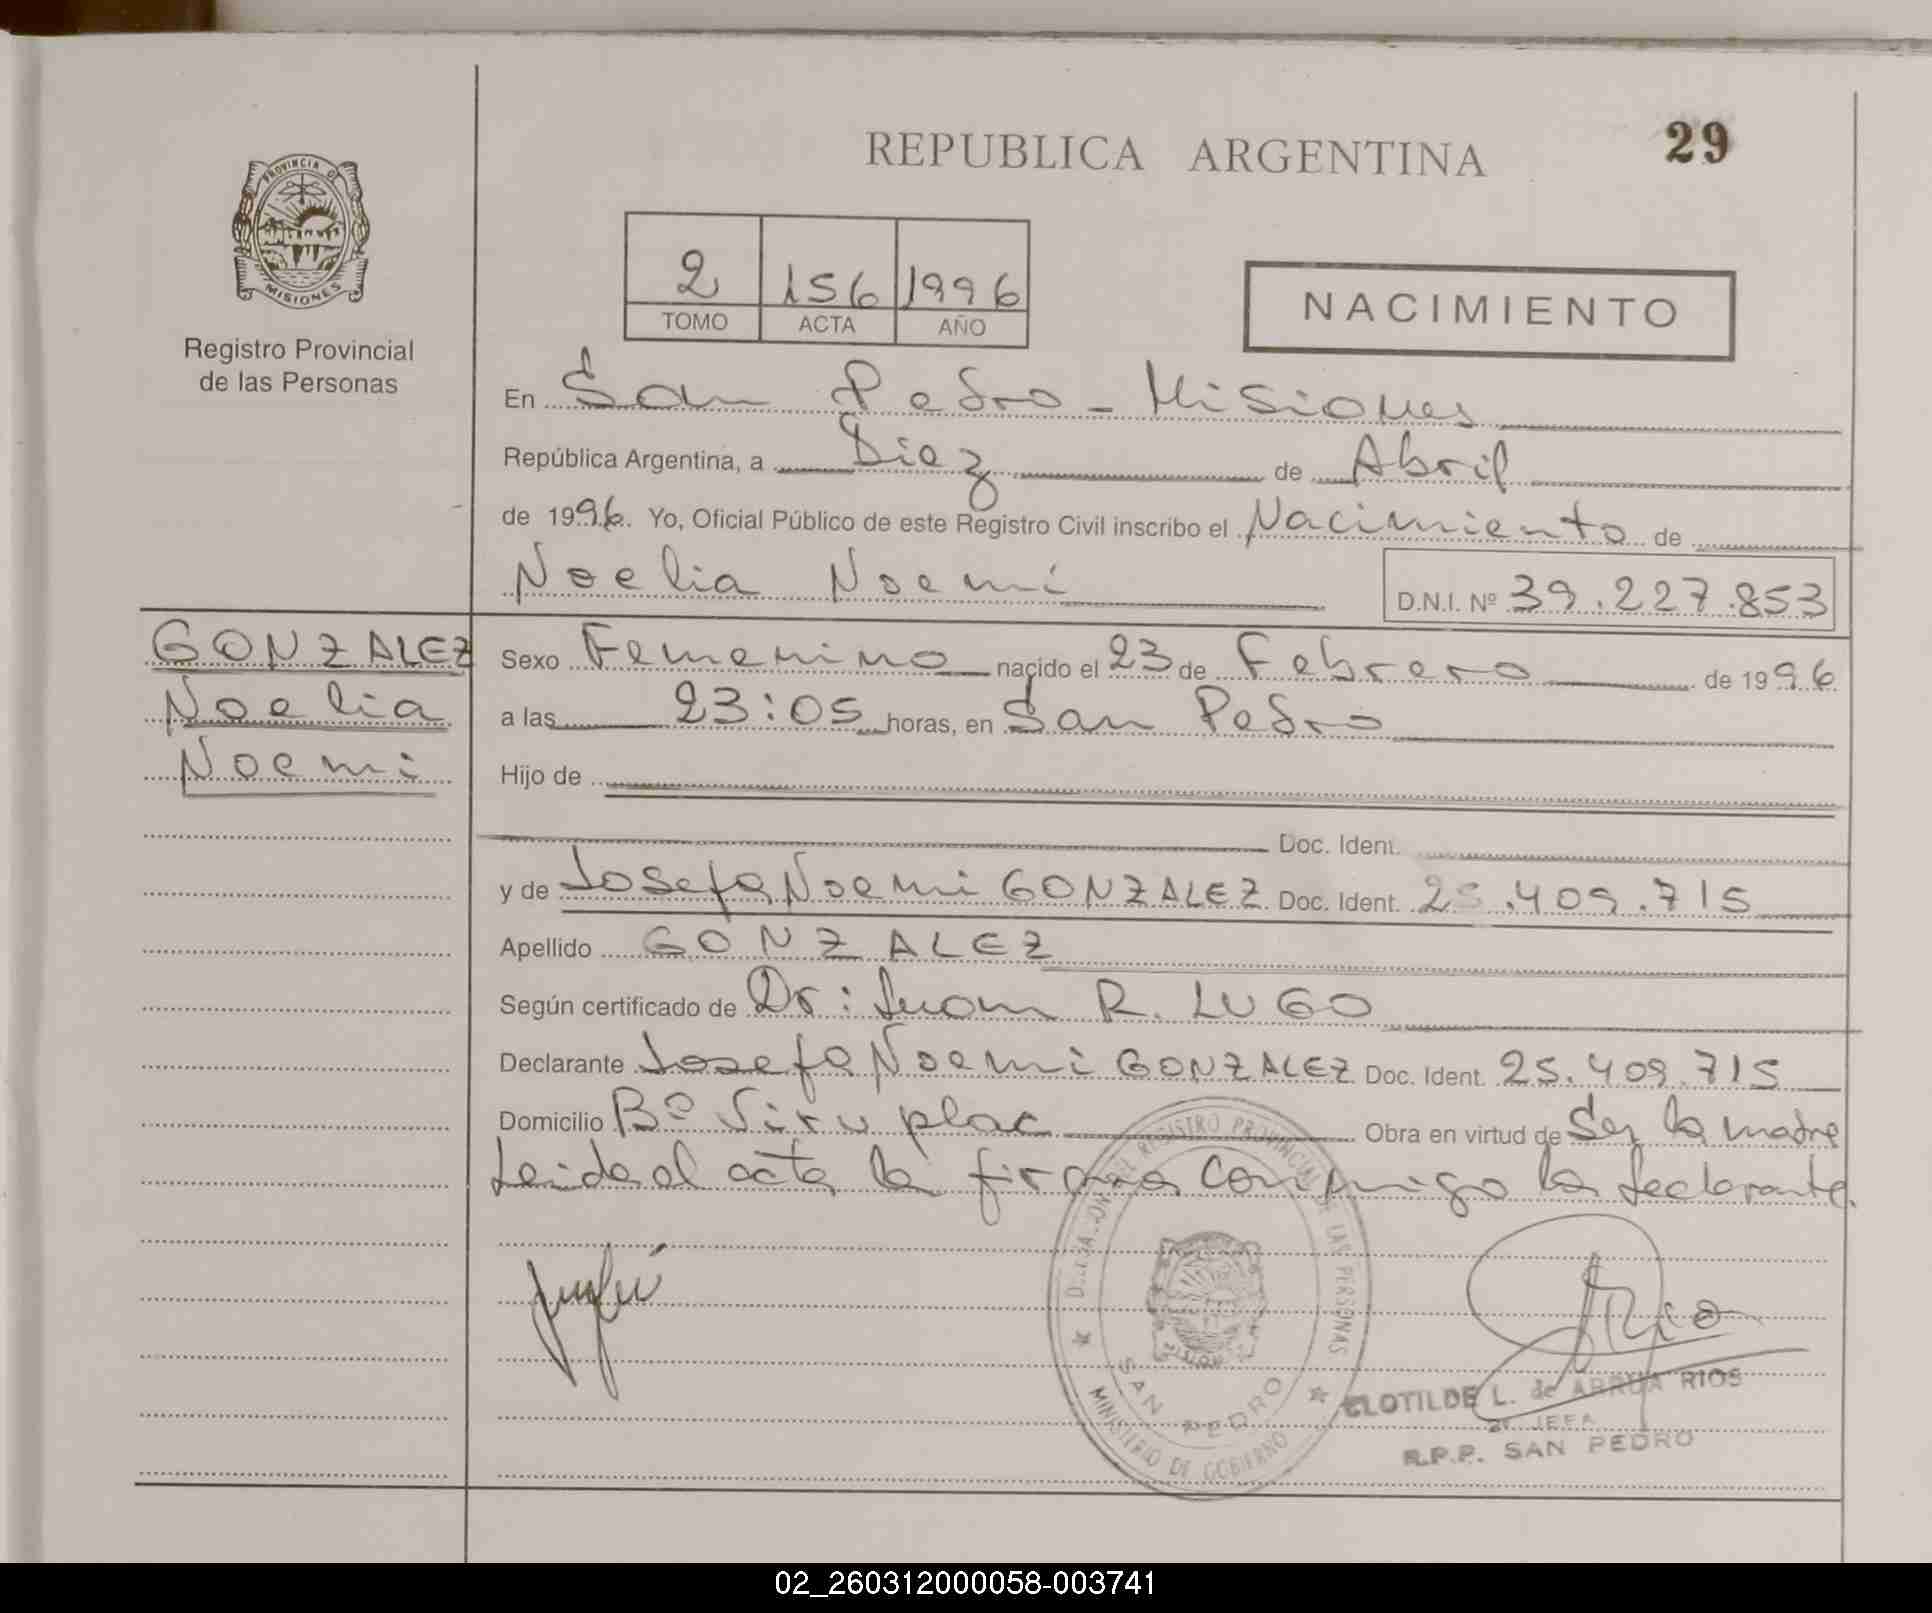 REPUBLICA ARGENTINA
29
PROVINCIA DE
MISIONES
Registro Provincial
de las Personas
2 156 1996
TOMO ACTA AÑO
NACIMIENTO
En San Pedro - Misiones
República Argentina, a Diez de Abril
de 1996. Yo, Oficial Público de este Registro Civil inscribo el Nacimiento de
Noelia Noemí
D.N.I. Nº 39.227.853
GONZALEZ
Noelia
Noemi
Sexo Femenino nacido el 23 de Febrero de 1996
a las 23:05 horas, en San Pedro
Hijo de
Doc. Ident.
y de Josefa Noemi GONZALEZ Doc. Ident. 25.409.715
Apellido GONZALEZ
Según certificado de Dr: Juan R. LUGO
Declarante Josefa Noemi GONZALEZ Doc. Ident. 25.409.715
Domicilio Bº Siru plac Obra en virtud de Ser la madre
Leida el acta la firma conmigo la declarante.
DELEGACION DEL REGISTRO PROVINCIAL DE LAS PERSONAS
SAN PEDRO
MINISTERIO DE GOBIERNO
CLOTILDE L. de ARRUA RIOS
JEFA
R.P.P. SAN PEDRO
02_260312000058-003741